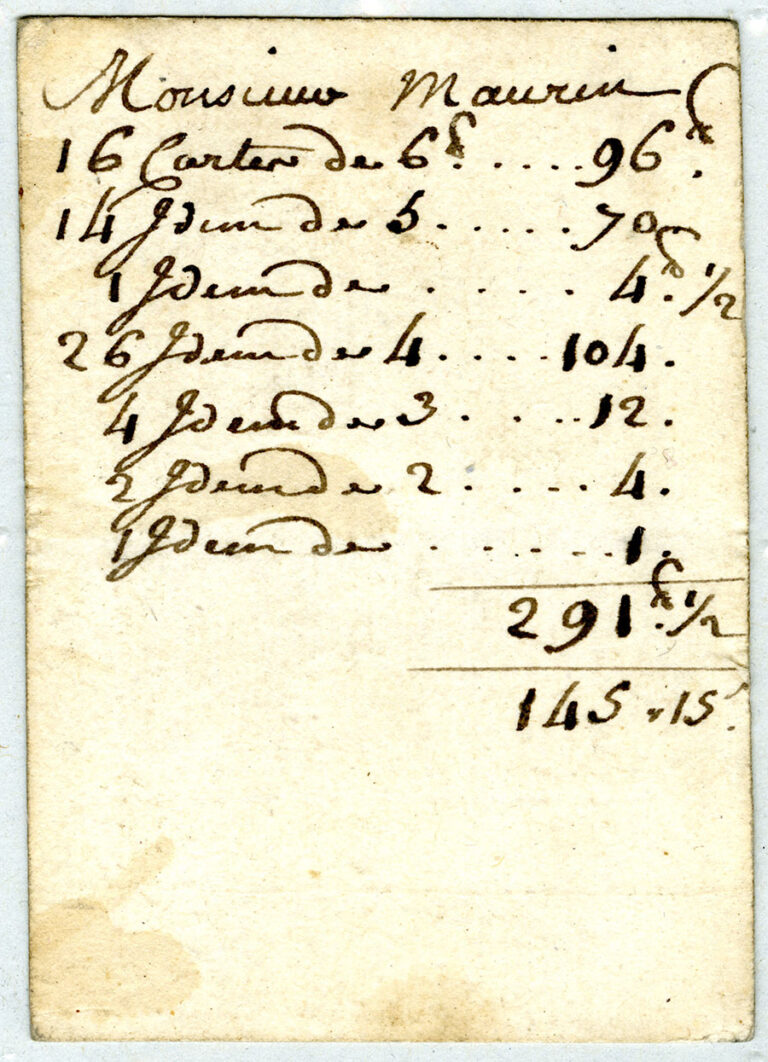 Monsieur Maurin
16 Cartes de 6d. .... 96d.
14 Idem de 5 ..... 70
1 Idem de ..... 4d. 1/2
26 Idem de 4 .... 104.
4 Idem de 3 .... 12.
2 Idem de 2 ..... 4.
1 Idem de ...... 1.
291d. 1/2
145 " 15s.